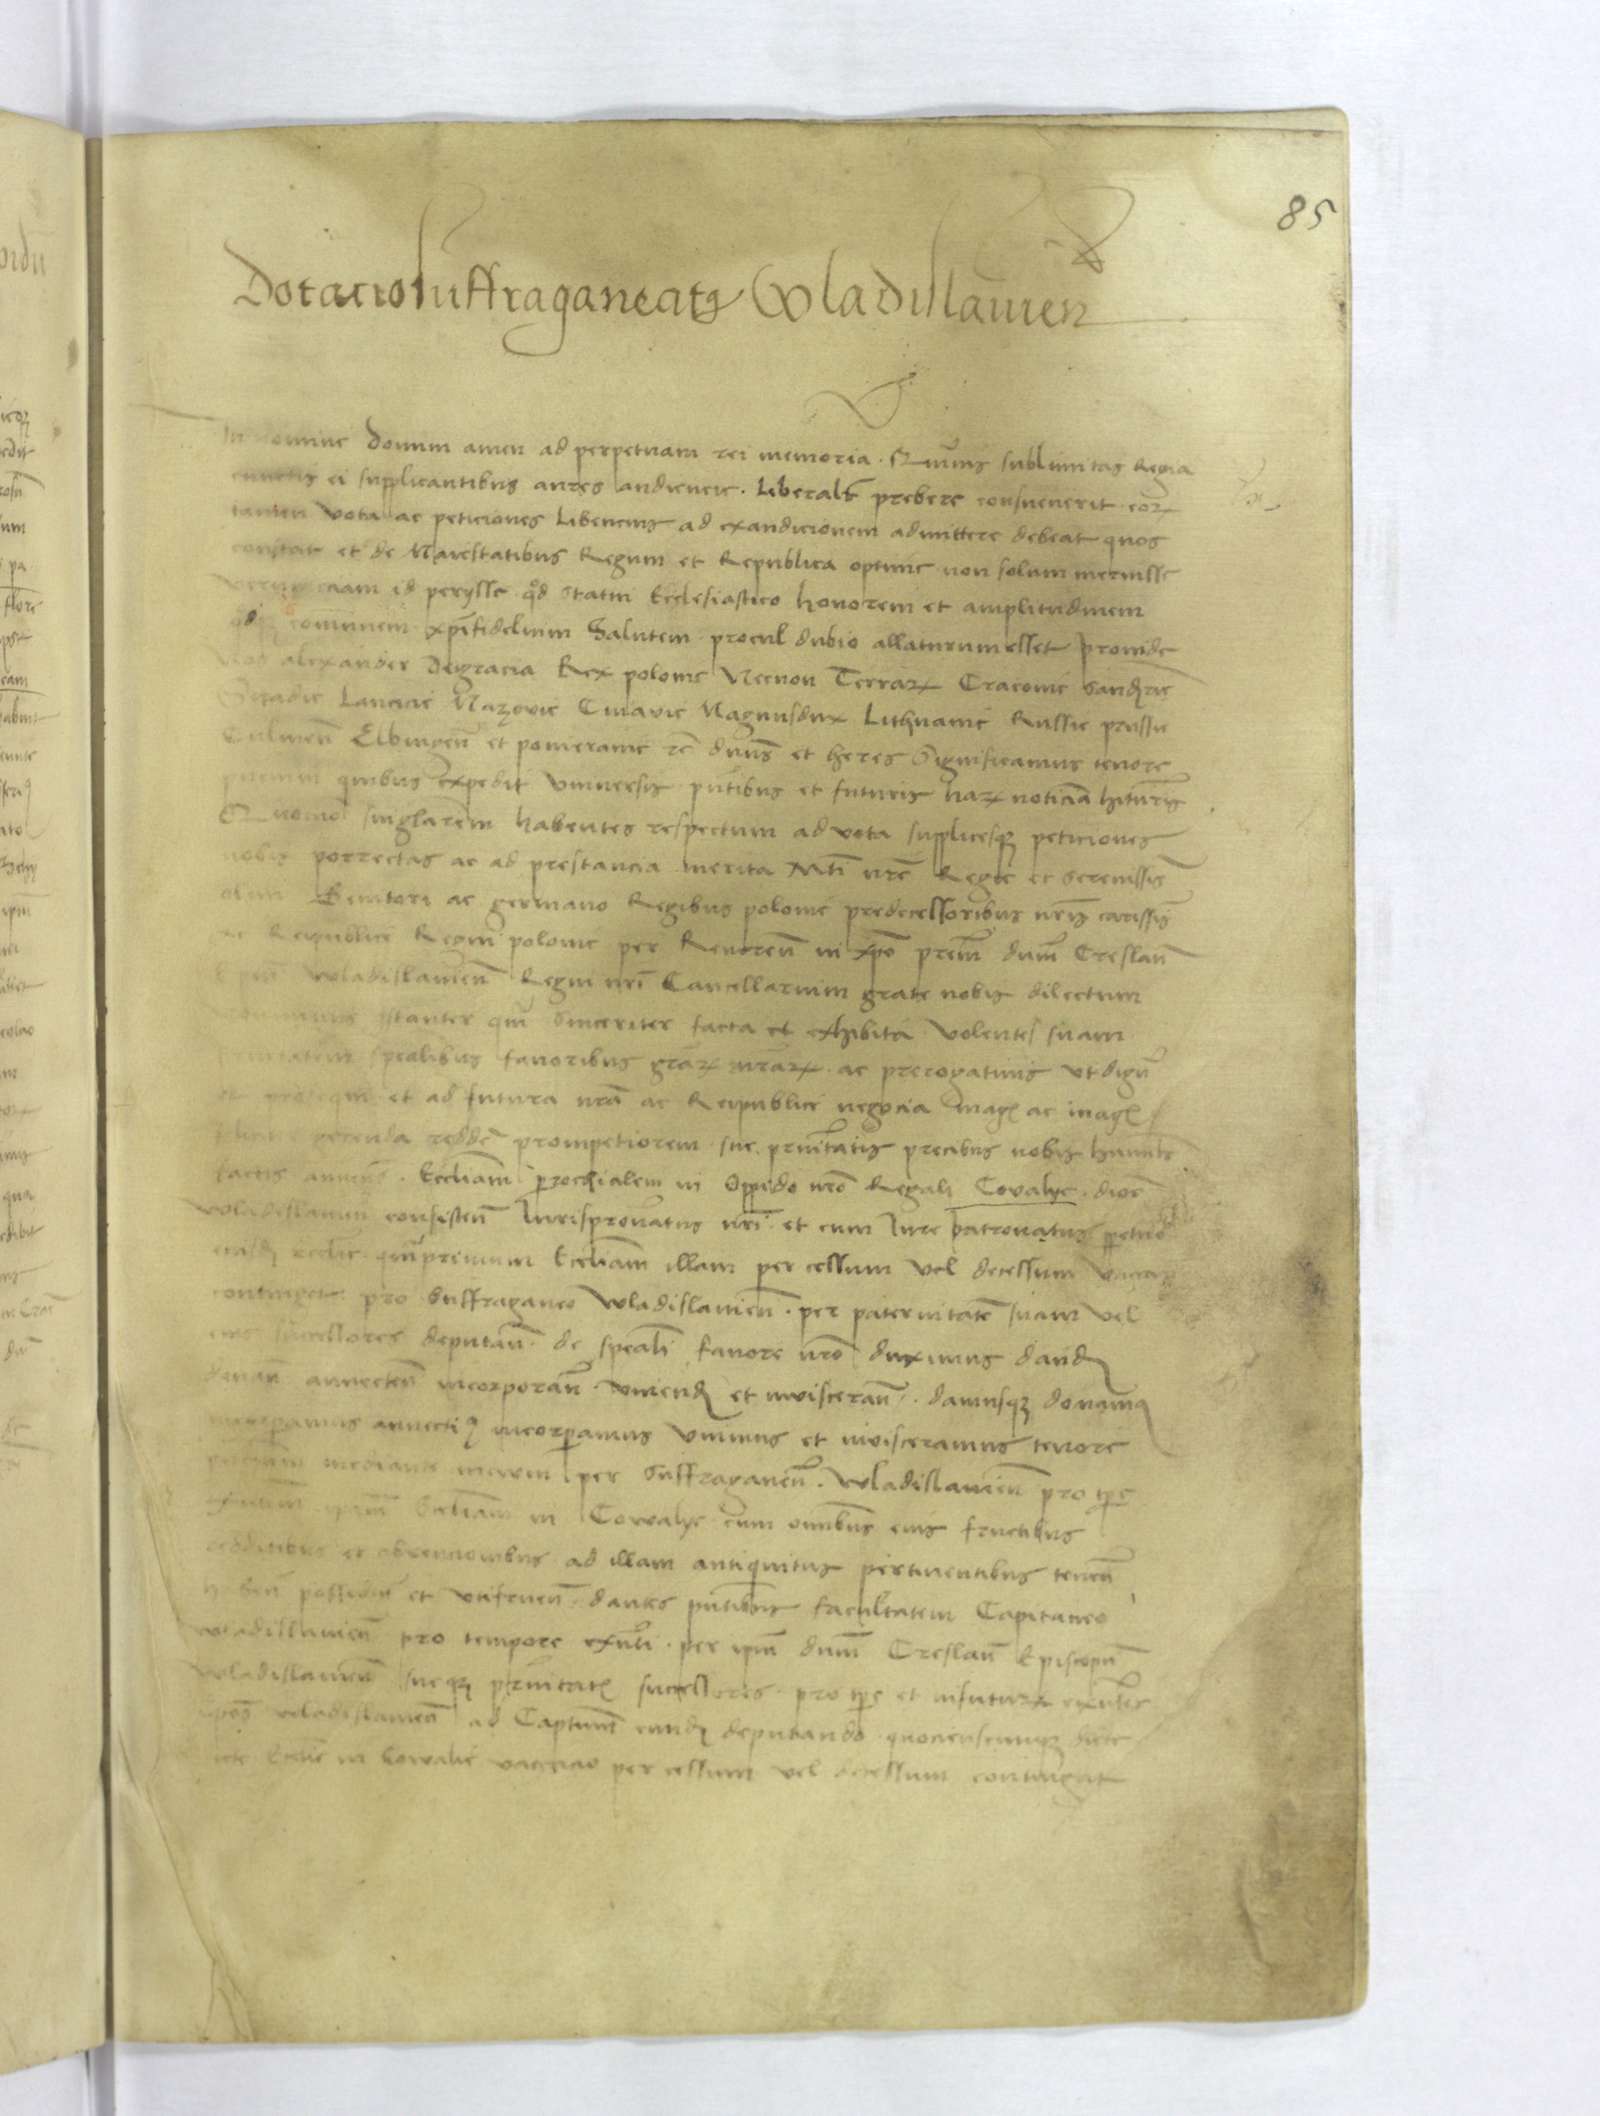 85
Dotacio suffraganeatus Wladislauien
In nomine Domini amen ad perpetuam rei memoria. Quavis sublimitas Regia
cunctis ei supplicantibus aures audiencie. Liberalr prebere consueuerit eorz
tamen vota ac peticiones libencius ad exaudicionem admittere debeat quos
constat et de Maiestatibus Regum et Republica optime non solum meruisse
verum eciam id petysse qd statui Ecclesiastico honorem et amplitudinem
comunem xpifidelium Salutem procul dubio allaturum esset proinde
Nos alexander Deigracia Rex polonie Necnon Terrarz Cracouie Sandrie
Siradie Lancicie Mazouie Cuiauie Magnusdux Lithuanie Russie prussie
Culmen Elbingen et pomeranie rc dnus et heres Significamus tenore
pncium quibus expedit vniuersis pntibus et futuris harz noticia hituris
Quomo singlarem habentes respectum ad vota supplicesqz peticiones
nobis porrectas ac ad prestancia merita Mti nre Regie et Serenissis
olim Genitori ac germano Regibus polonie predecessoribus nris carissis
ac Reipublice Regni polonie per Reueren in xpo prem dnm Creslau
Epum Wladislauien Regni nri Cancellarium grate nobis dilectum
istanter qm Sinceriter facta et exhibita volentes suam
prnitatem spcalibus fauoribus grarz nrarz ac prerogatiuis vt dignu
prosequi et ad futura nra ac Reipublice negocia magis ac magis
gerenda redde prompciorem sue prnitatis precibus nobis humilr
factis annuen. Eccliam prochialem in Oppido nro Regali Covalye dioc
Wladislauien consisten Jurispronatus nri et cum Jure patronatus ppetuo
eiusd ecclie qmprimum Eccliam illam per cessum vel decessum vacar
contiget pro Suffraganeo Wladislauien. per paternitate suam vel
eius successores deputan de speali fauore nro duximus dand
donan annecten incorporan vniend et inuisceran. damusqz donamus
annecti incorpamus vnimus et inuisceramus tenore
pncium mediante per Suffraganeu. Wladislauien pro tpe
exnten ipam Eccliam in Cowalye cum omnibus eius fructibus
redditibus et obuencionibus ad illam antiquitus pertinentibus tenen
haben possiden et vtifruen. dantes pntibus facultatem Capitaneo
Wladislauien pro tempore exnti. per ipm dnm Creslau Episcopu
Wladislauien sueqz prnitatis successores. pro tpe et infuturz exntes
Epos wladislauien ad Captum eund deputando quocienscumqz dicte
Ecclie in Cowalie vacacio per cessum vel decessum contingat